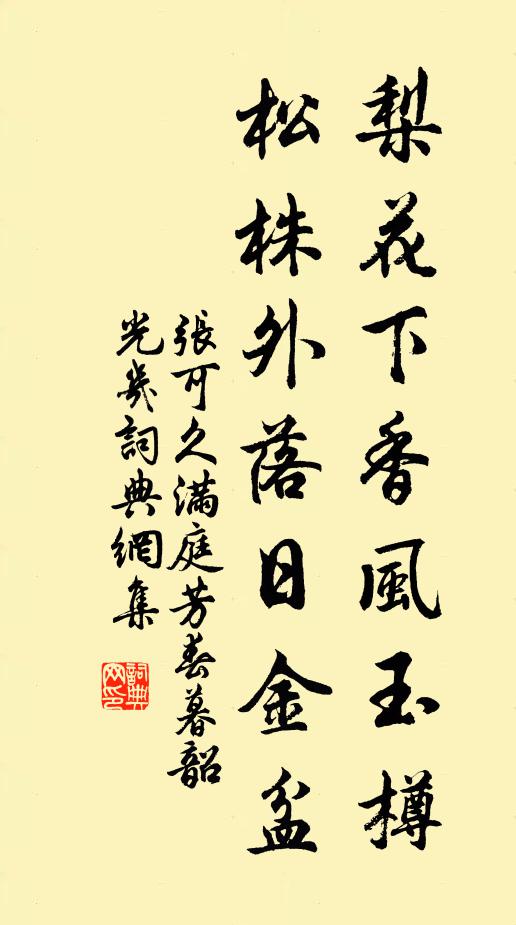 梨花下香風玉樽
松株外落日金盆
張可久滿庭芳春暮韶
光幾詞典網集
詞典網印